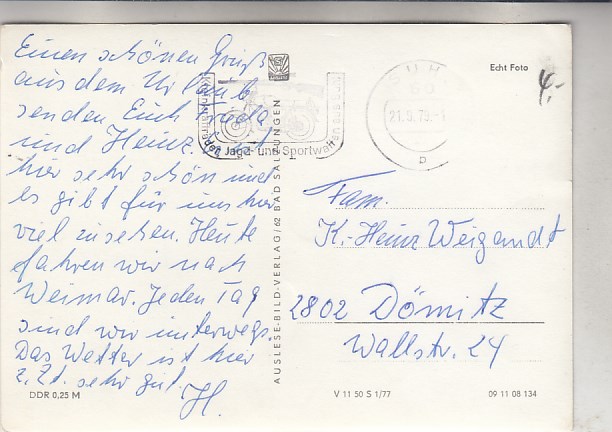 Einen schönen Gruß
aus dem Urlaub
senden Euch Frieda
und Heinz. Es ist
hier sehr schön und
es gibt für uns hier
viel zu sehen. Heute
fahren wir nach
Weimar. Jeden Tag
sind wir unterwegs.
Das Wetter ist hier
z. Zt. sehr gut.
H.
DDR 0,25 M
AUSLESE-BILD-VERLAG/62 BAD SALZUNGEN
Jagd- und Sportwaffen aus Suhl
SUHL
60
21.9.79.-
b
Echt Foto
4,-
Fam.
K.-Heinz Weigandt
2802 Dömitz
Wallstr. 24
V 11 50 S 1/77
09 11 08 134